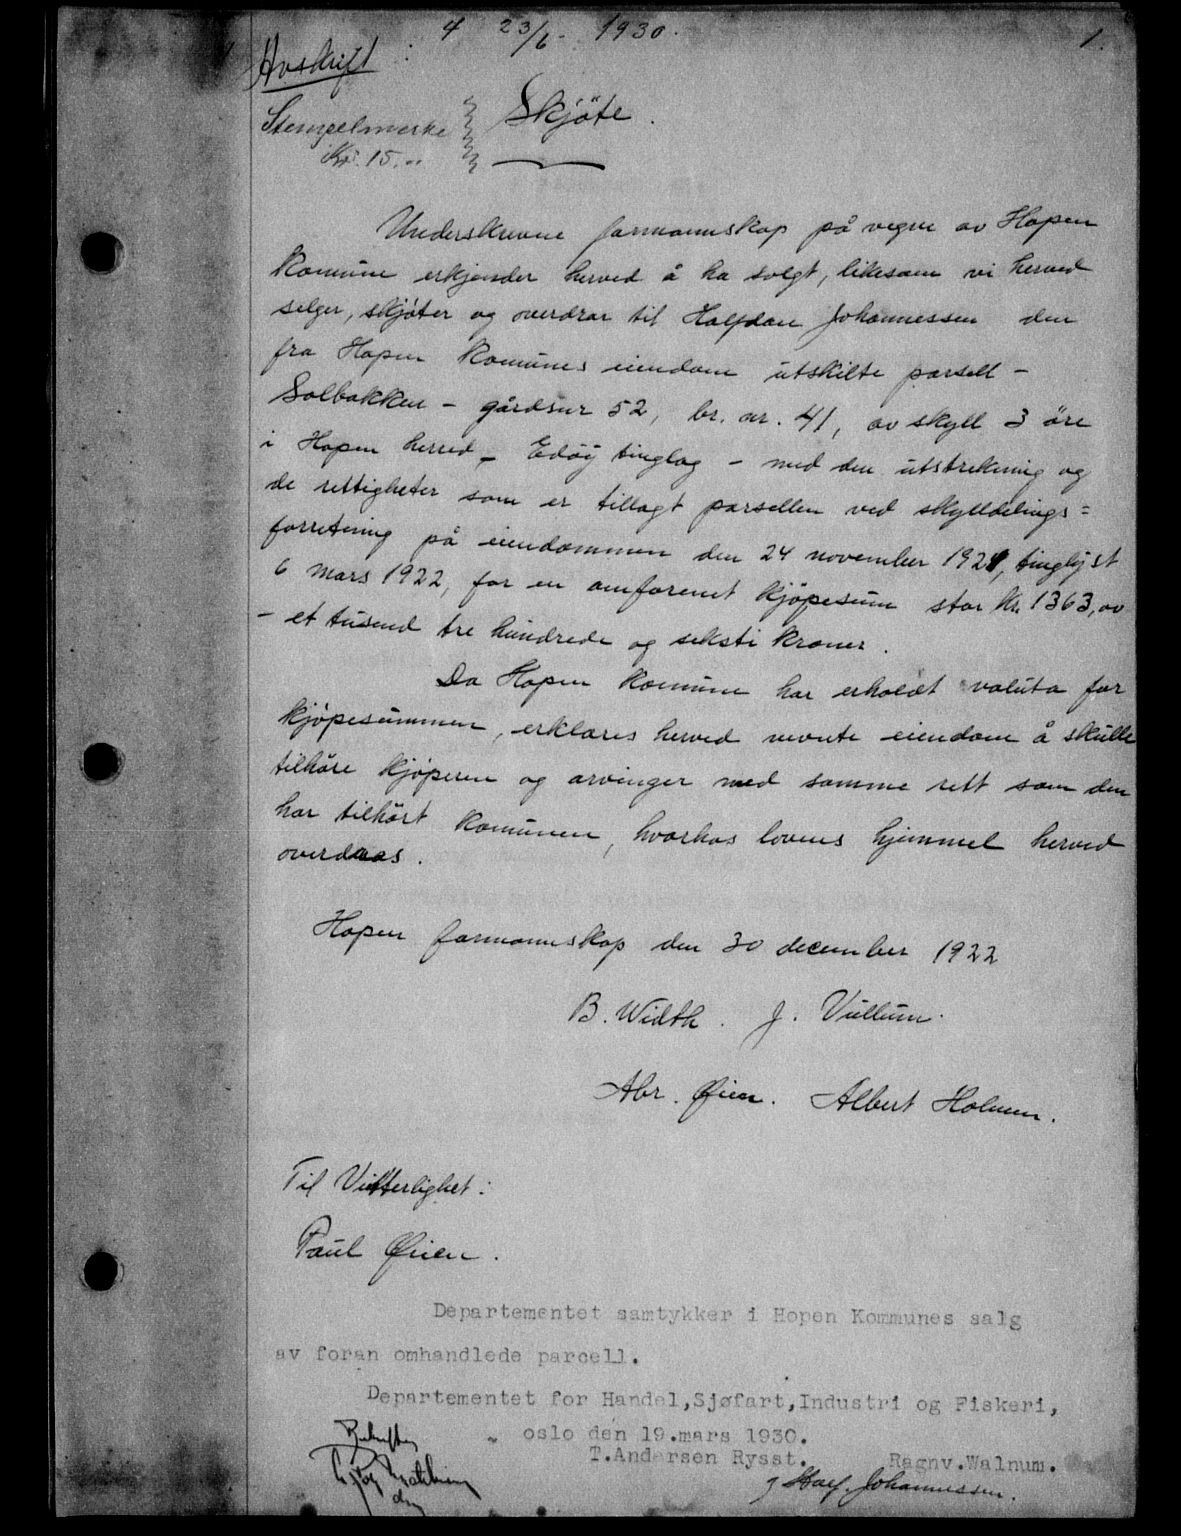 4 23/6- 1930. 1.
Avskrift :
Stempelmerke
Kr. 15.00
Skjöte.
Underskrevne formannskap på vegne av Hopen
komune erkjender herved å ha solgt, likesom vi herved
selger, skjöter og overdrar til Halfdan Johannessen den
fra Hopen komunes eiendom utskilte parsell -
Solbakken - gårdsnr 52, br. nr. 41, av skyll 3 öre
i Hopen herred - Edöy tinglag - med den utstrekning og
de rettigheter som er tillagt parsellen ved skylldelings=
forretning på eiendommen den 24 november 1921, tinglyst
6 mars 1922, for en omforenet kjöpesum stor Kr. 1363,00
- et tusend tre hundrede og seksti kroner.
Da Hopen komune har erholdt valuta for
kjöpesummen, erklæres herved nevnte eiendom å skulle
tilhöre kjöperen og arvinger med samme rett som den
har tilhört komunen, hvorhos lovens hjemmel herved
overdraas.
Hopen formannskap den 30 december 1922
B. Width. J. Vullum.
Abr. Øien. Albert Holmen.
Til Vitterlighet:
Paul Øien.
Departementet samtykker i Hopen Kommunes salg
av foran omhandlede parcell.
Departementet for Handel,Sjøfart,Industri og Fiskeri,
oslo den 19.mars 1930.
T.Andersen Rysst. Ragnv.Walnum.
Half. Johannessen.